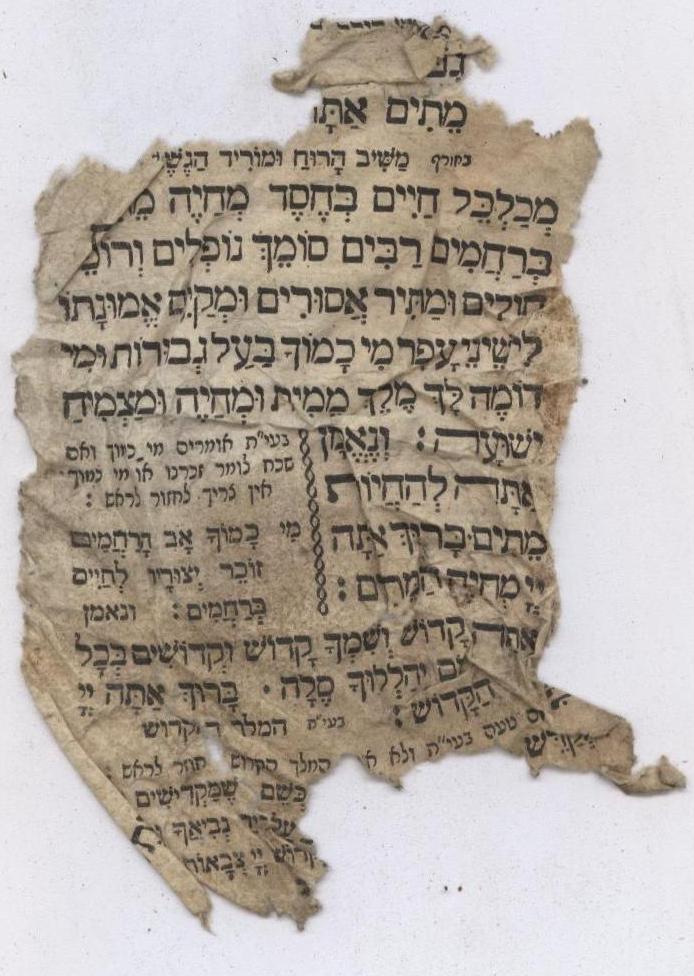 מֵתִים אַתָּ
בחורף מַשִּׁיב הָרוּחַ וּמוֹרִיד הַגֶּשֶׁ
מְכַלְכֵּל חַיִּים בְּחֶסֶד מְחַיֶּה מֵ
בְּרַחֲמִים רַבִּים סוֹמֵךְ נוֹפְלִים וְרוֹפֵ
חוֹלִים וּמַתִּיר אֲסוּרִים וּמְקַיֵּם אֱמוּנָתוֹ
לִישֵׁינֵי עָפָר מִי כָמוֹךָ בַּעַל גְּבוּרוֹת וּמִי
דוֹמֶה לָּךְ מֶלֶךְ מֵמִית וּמְחַיֶּה וּמַצְמִיחַ
יְשׁוּעָה : וְנֶאֱמָן
אַתָּה לְהַחֲיוֹת
מֵתִים בָּרוּךְ אַתָּה
יְיָ מְחַיֵּה הַמֵּתִים :
בעי״ת אומרים מי כמוך ואם
שכח לומר זכרנו או מי כמוך
אין צריך לחזור לראש :
מִי כָמוֹךָ אָב הָרַחֲמִים
זוֹכֵר יְצוּרָיו לְחַיִּים
בְּרַחֲמִים : ונאמן
אַתָּה קָדוֹשׁ וְשִׁמְךָ קָדוֹשׁ וּקְדוֹשִׁים בְּכָל
יְהַלְלוּךָ סֶלָה . בָּרוּךְ אַתָּה יְיָ
הַקָּדוֹשׁ : בעי״ת המלך הקדוש
טעה בעי״ת ולא המלך הקדוש חוזר לראש :
כְּשֵׁם שֶׁמַּקְדִּישִׁים
נְבִיאֶךָ
קָדוֹשׁ יְיָ צְבָאוֹת